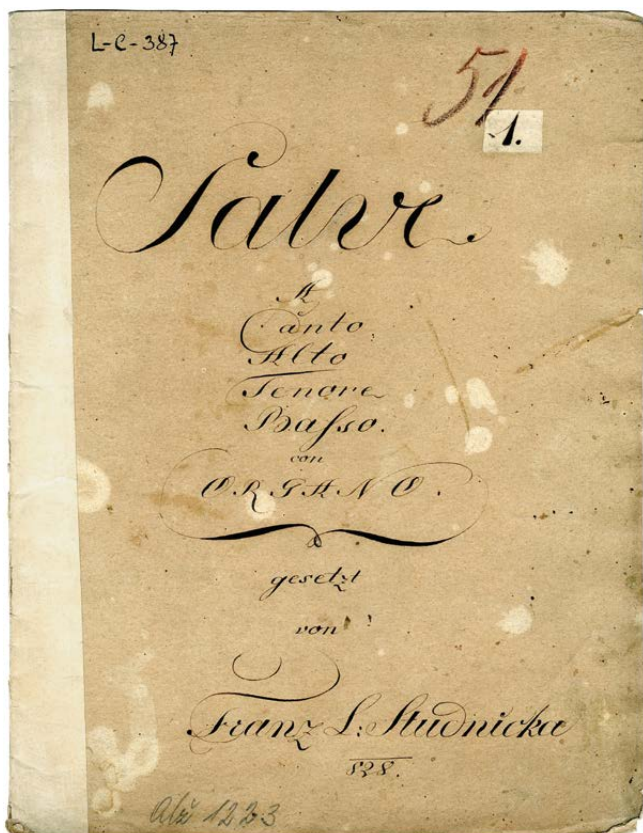 L-C-387
51
1.
Salve
A
Canto
Alto
Tenore
Basso.
von
ORGANO.
gesetzt
von
Franz L: Studnicka
828.
Alž 1223